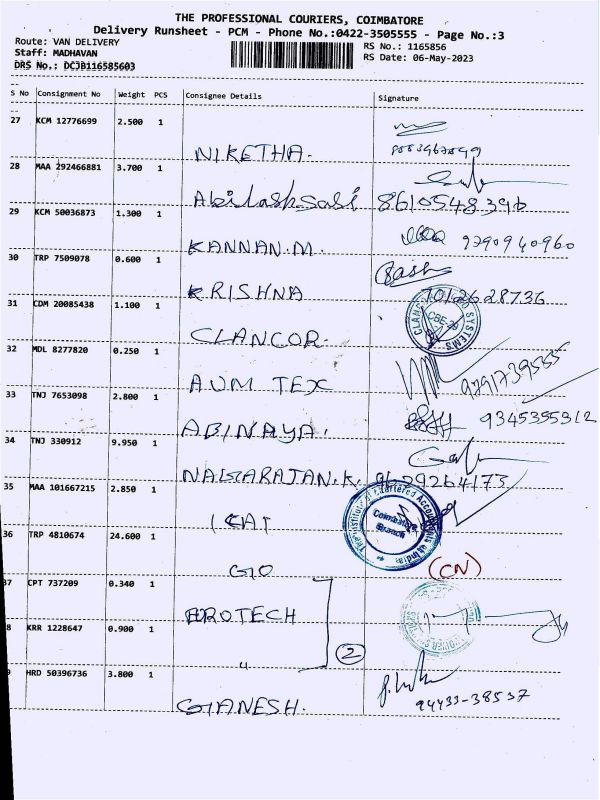 THE PROFESSIONAL COURIERS, COIMBATORE
Delivery Runsheet - PCM - Phone No.:0422-3505555 - Page No.:3
Route: VAN DELIVERY
RS No.: 1165856
Staff: MADHAVAN
RS Date: 06-May-2023
DRS No.: DCJB116585603
S No Consignment No Weight PCS Consignee Details Signature
27 KCM 12776699 2.500 1
NIKETHA.
28 MAA 292466881 3.700 1
Abilash sabi 8610548390
29 KCM 50036873 1.300 1
KANNAN.M. 9290940960
30 TRP 7509078 0.600 1
KRISHNA 7012628736
31 CDM 20085438 1.100 1
CLANCOR.
32 MDL 8277820 0.250 1
AUM TEX 9791739535
33 TNJ 7653098 2.800 1
ABINAYA. 9345355312
34 TNJ 330912 9.950 1
NAGARAJAN.K. 9629264173
35 MAA 101667215 2.850 1
ICAI
The Institute of Chartered Accountants of India
Coimbatore
Branch
36 TRP 4810674 24.600 1
GIO (CN)
37 CPT 737209 0.340 1
PROTECH
8 KRR 1228647 0.900 1
" 2
HRD 50396736 3.800 1
GANESH. 94433-38537